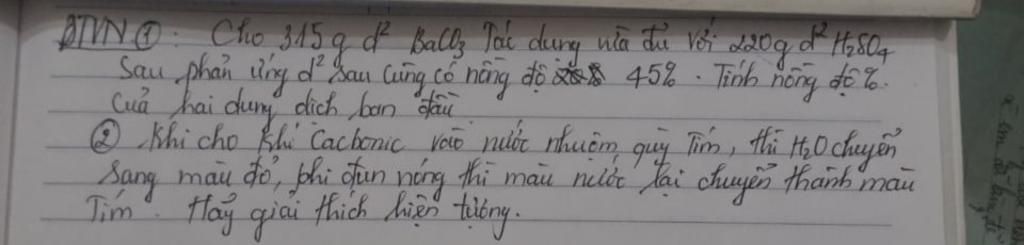 BTVN ①: Cho 315g d² BaCO₃ Tác dụng vừa đủ với 220g d² H₂SO₄
Sau phản ứng d² sau cùng có nồng độ 45%. Tính nồng độ %.
Của hai dung dịch ban đầu.
② Khi cho khí Cacbonic vào nước nhuộm quỳ Tím, thì H₂O chuyển
Sang màu đỏ, khi đun nóng thì màu nước lại chuyển thành màu
Tím. Hãy giải thích hiện tượng.